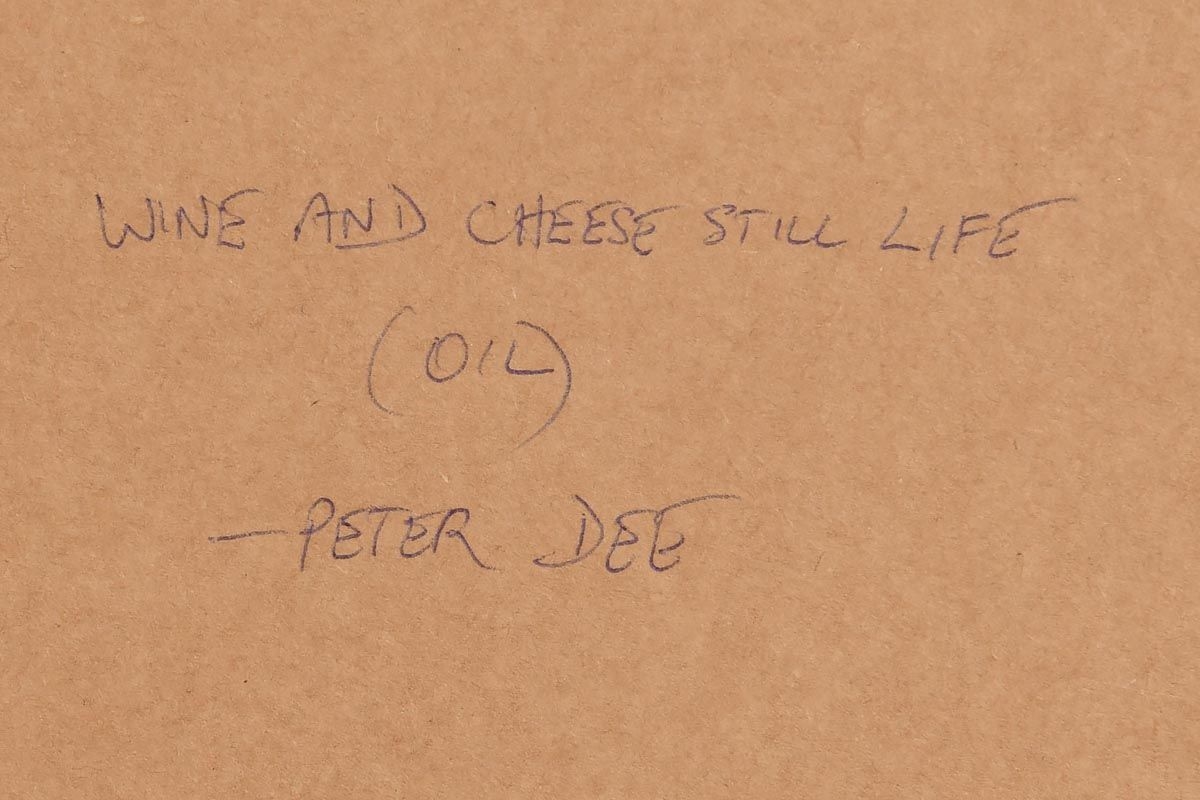 WINE AND CHEESE STILL LIFE
(OIL)
—PETER DEE